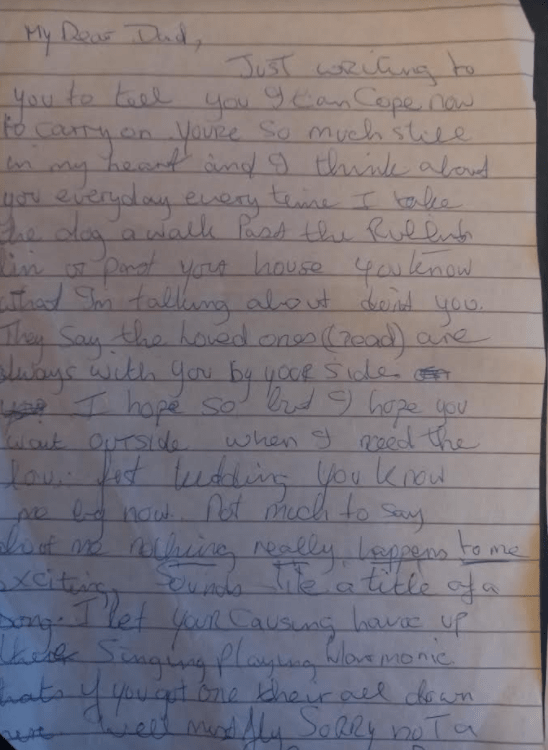 My Dear Dad,
Just writing to
you to tell you I can Cope now
to carry on youre so much still
in my heart and I think about
you everyday every time I take
the dog a walk Past the
or past your house you know
what Im talking about dont you.
They say the Loved ones (read) are
always with you by your side
I hope so but I hope you
wait outside when I need the
Lou. Just kidding you know
me by now. Not much to say
about me nothing really happens to me
exciting. Sounds like a title of a
song. I bet your Causing havoc up
there Singing Playing Harmonic
thats if you got one their all down
here. Well SORRY not a